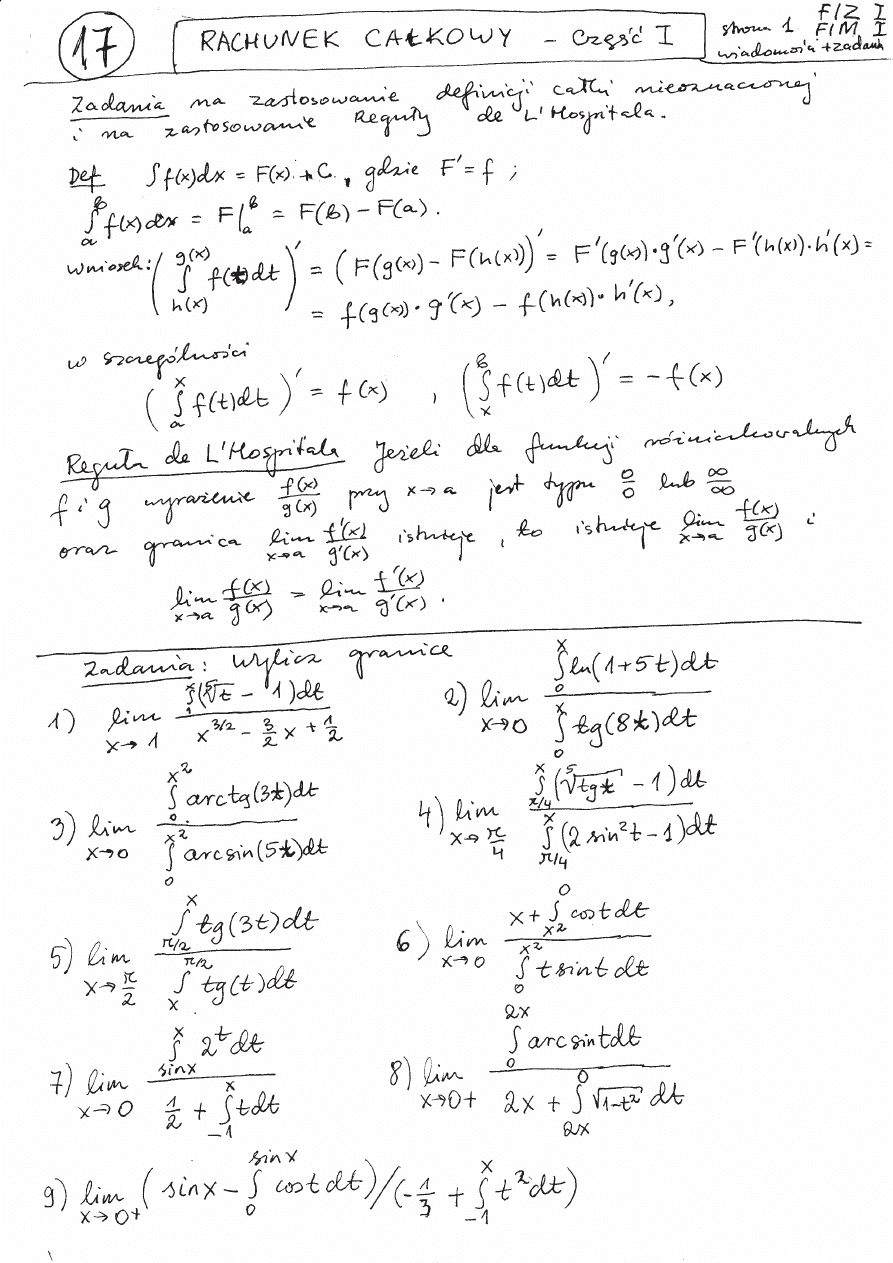 17 RACHUNEK CAŁKOWY – Część I strona 1 FIZ I FIM I wiadomości + zadania
Zadania na zastosowanie definicji całki nieoznaczonej
i na zastosowanie Reguły de L'Hospitala.
Def ∫f(x)dx = F(x) + C, gdzie F' = f ;
∫_a^b f(x)dx = F|_a^b = F(b) – F(a).
Wniosek: (∫_{h(x)}^{g(x)} f(t)dt)' = (F(g(x)) – F(h(x)))' = F'(g(x))·g'(x) – F'(h(x))·h'(x) =
= f(g(x))·g'(x) – f(h(x))·h'(x),
w szczególności
(∫_a^x f(t)dt)' = f(x) , (∫_x^b f(t)dt)' = –f(x)
Reguła de L'Hospitala Jeżeli dla funkcji różniczkowalnych
f i g wyrażenie f(x)/g(x) przy x→a jest typu 0/0 lub ∞/∞
oraz granica lim_{x→a} f'(x)/g'(x) istnieje, to istnieje lim_{x→a} f(x)/g(x) i
lim_{x→a} f(x)/g(x) = lim_{x→a} f'(x)/g'(x).
Zadania: Wylicz granice
1) lim_{x→1} ∫_1^x (⁵√t – 1)dt / (x^{3/2} – 3/2 x + 1/2)
2) lim_{x→0} ∫_0^x ln(1+5t)dt / ∫_0^x tg(8t)dt
3) lim_{x→0} ∫_0^{x²} arctg(3t)dt / ∫_0^{x²} arcsin(5t)dt
4) lim_{x→π/4} ∫_{π/4}^x (⁵√tgt – 1)dt / ∫_{π/4}^x (2 sin²t – 1)dt
5) lim_{x→π/2} ∫_{π/2}^x tg(3t)dt / ∫_x^{π/2} tg(t)dt
6) lim_{x→0} (x + ∫_{x²}^0 cost dt) / ∫_0^{x²} t sint dt
7) lim_{x→0} ∫_{sinx}^x 2^t dt / (1/2 + ∫_{-1}^x tdt)
8) lim_{x→0+} ∫_0^{2x} arcsintdt / (2x + ∫_{2x}^0 √(1–t²) dt)
9) lim_{x→0+} (sinx – ∫_0^{sinx} costdt)/(–1/3 + ∫_{-1}^x t²dt)